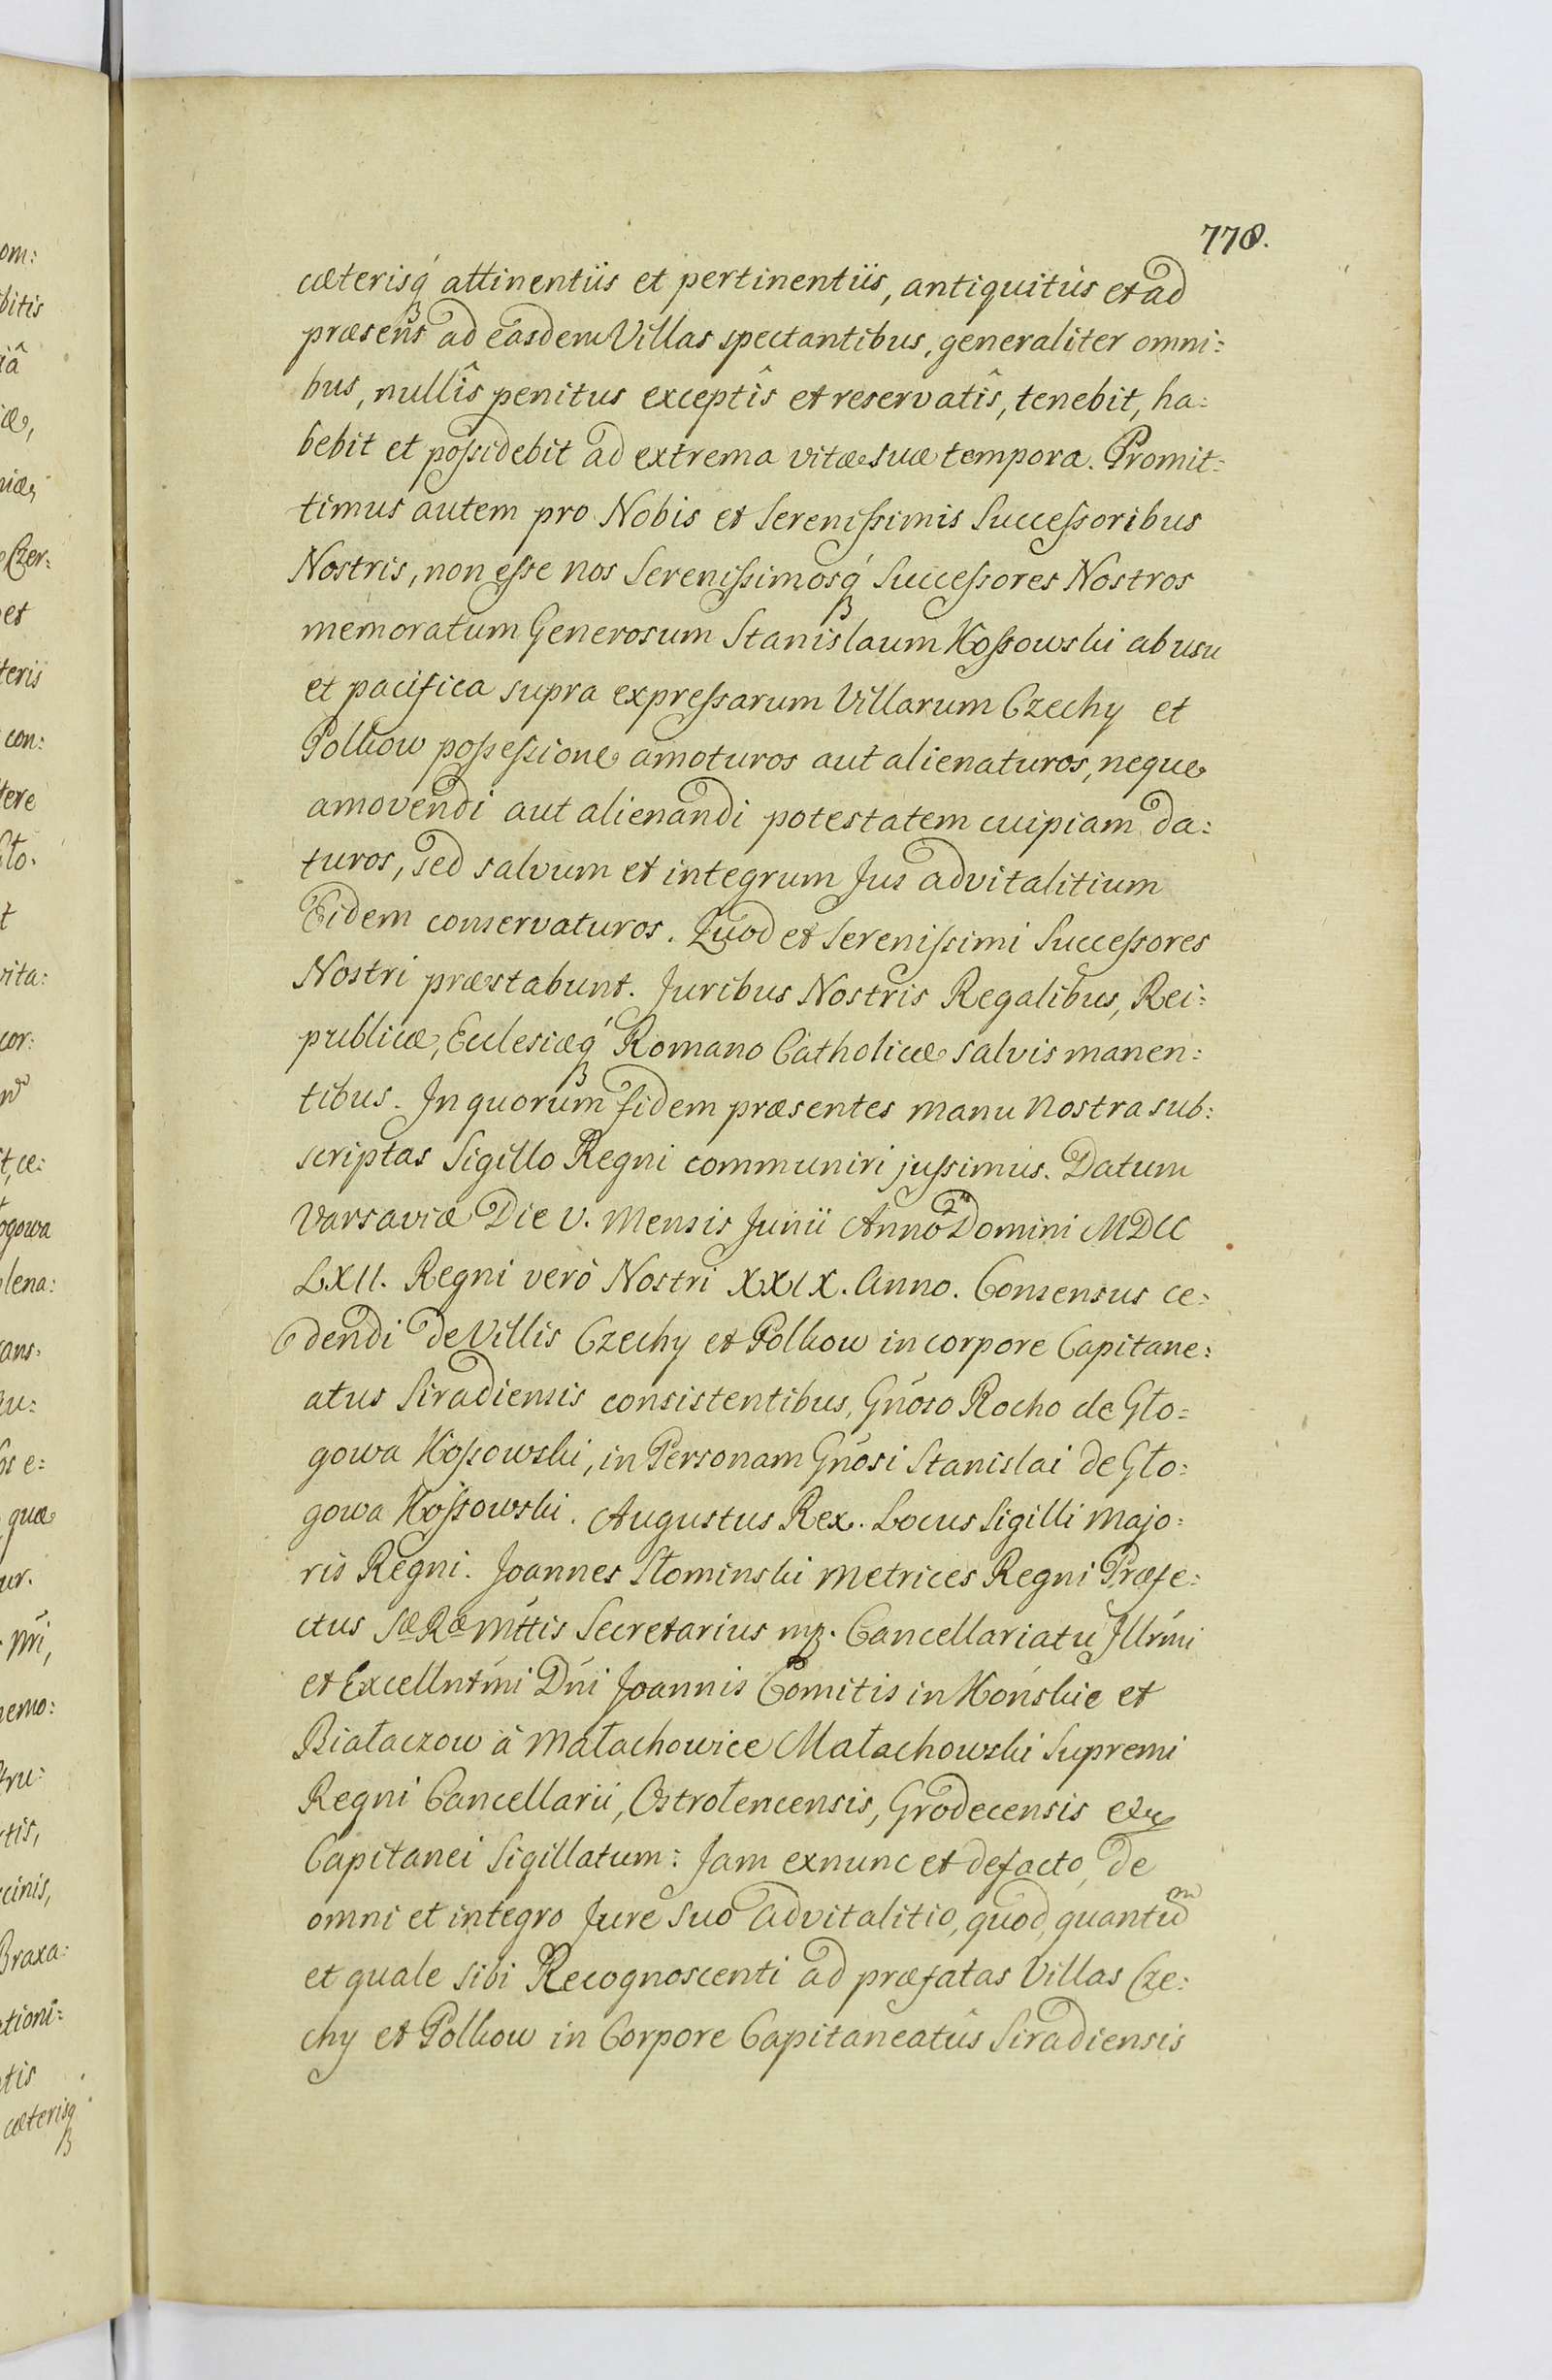 778.
cæterisq́ attinentiis et pertinentiis, antiquitùs et ad
præsens ad easdem Villas spectantibus, generaliter omni:
bus, nullîs penitus exceptîs et reservatîs, tenebit, ha:
bebit et possidebit ad extrema vitæ suæ tempora. Promit:
timus autem pro Nobis et Serenissimis Successoribus
Nostris, non esse nos Serenissimosq́ Successores Nostros
memoratum Generosum Stanislaum Kossowski ab usu
et pacifica supra expressarum Villarum Czechy et
Polkow possessione amoturos aut alienaturos, neque
amovendi aut alienandi potestatem cuipiam da:
turos, sed salvum et integrum Jus advitalitium
Eidem conservaturos. Quod et Serenissimi Successores
Nostri præstabunt. Juribus Nostris Regalibus, Rei:
publicæ, Ecclesiæq́ Romano Catholicæ salvis manen:
tibus. In quorum fidem præsentes manu nostra sub:
scriptas Sigillo Regni communiri jussimus. Datum
Varsaviæ Die V. Mensis Junii Anno Domini MDCC
LXII. Regni verò Nostri XXIX. Anno. Consensus ce:
dendi de Villis Czechy et Polkow in corpore Capitane:
atus Siradiensis consistentibus, Gńoso Rocho de Gło:
gowa Kossowski, in Personam Gńosi Stanislai de Gło:
gowa Kossowski. Augustus Rex. Locus Sigilli Majo:
ris Regni. Joannes Słominski Metrices Regni Præfe:
ctus Sæ Ræ Mttis Secretarius mp. Cancellariatu Illrmi
et Excellntmi Dńi Joannis Comitis in Końskie et
Białaczow à Małachowice Małachowski Supremi
Regni Cancellarii, Ostrołencensis, Grodecensis etc
Capitanei Sigillatum: Jam exnunc et defacto, de
omni et integro Jure suo advitalitio, quod, quantum
et quale sibi Recognoscenti ad præfatas Villas Cze:
chy et Polkow in Corpore Capitaneatûs Siradiensis